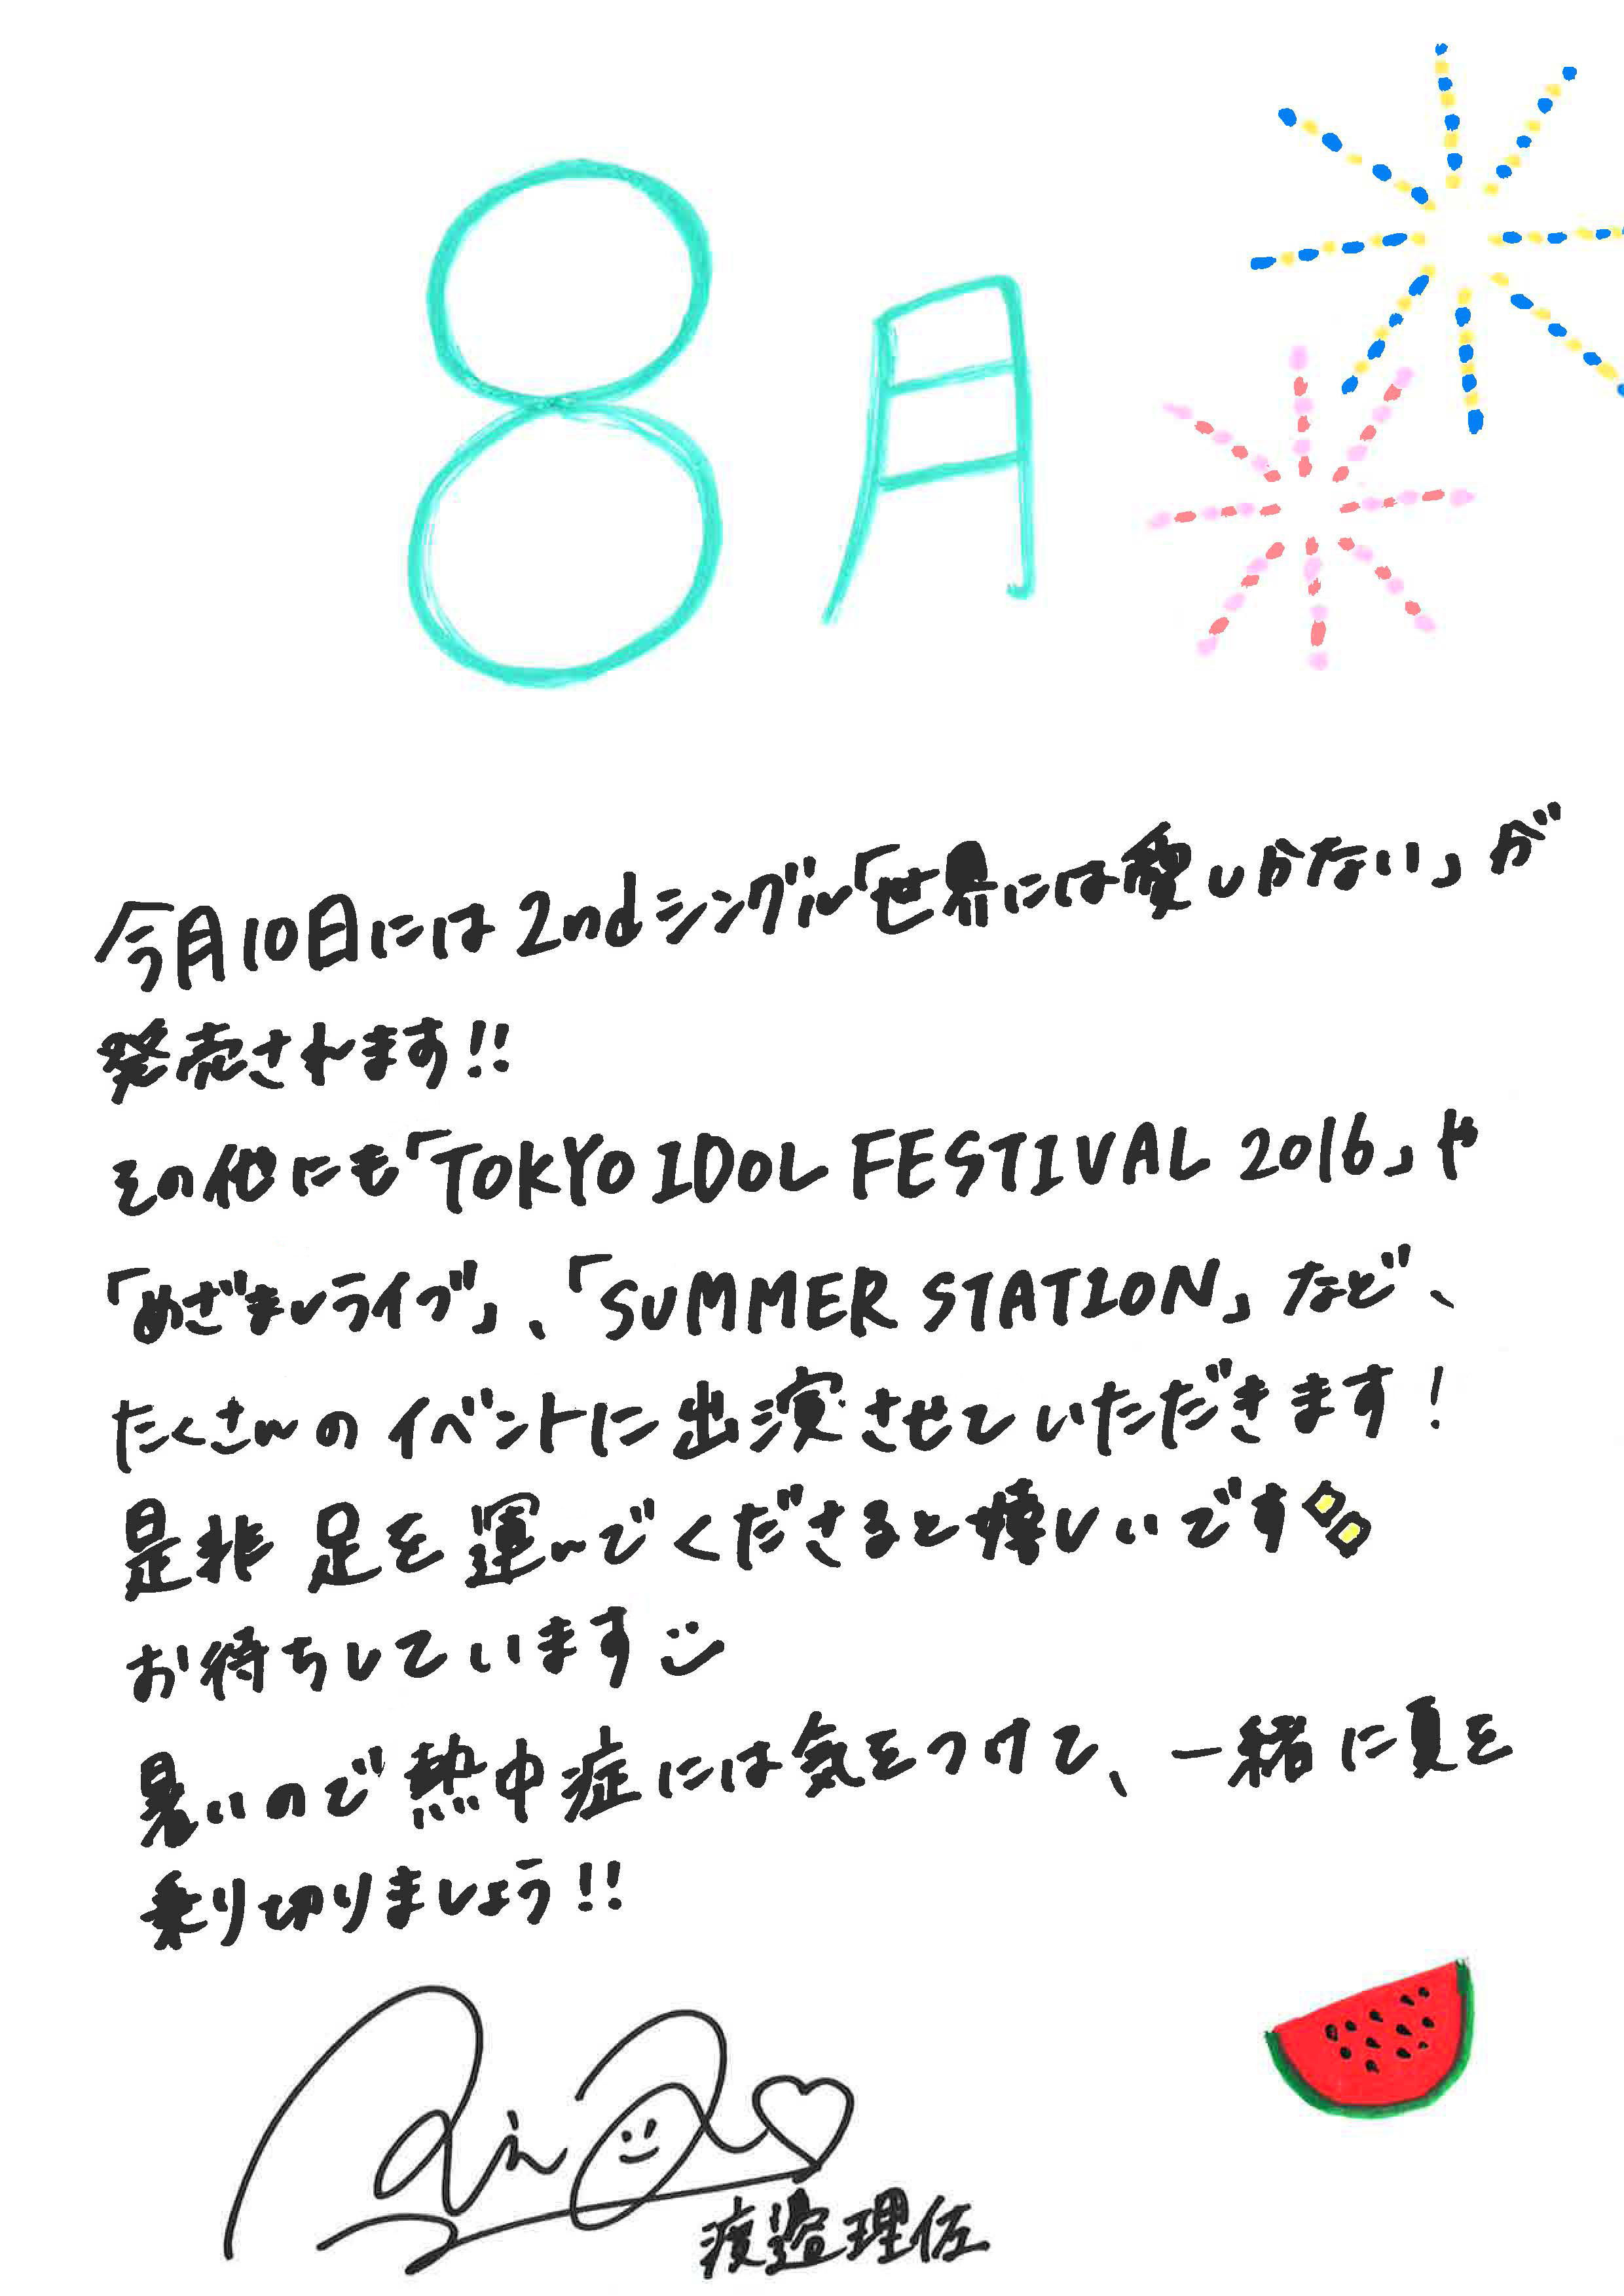 8月
今月10日には2ndシングル「世界には愛しかない」が
発売されます!!
その他にも「TOKYO IDOL FESTIVAL 2016」や
「めざましライブ」、「SUMMER STATION」など、
たくさんのイベントに出演させていただきます!
是非 足を運んでくださると嬉しいです
お待ちしています
暑いので熱中症には気をつけて、一緒に夏を
乗り切りましょう!!
渡邉理佐